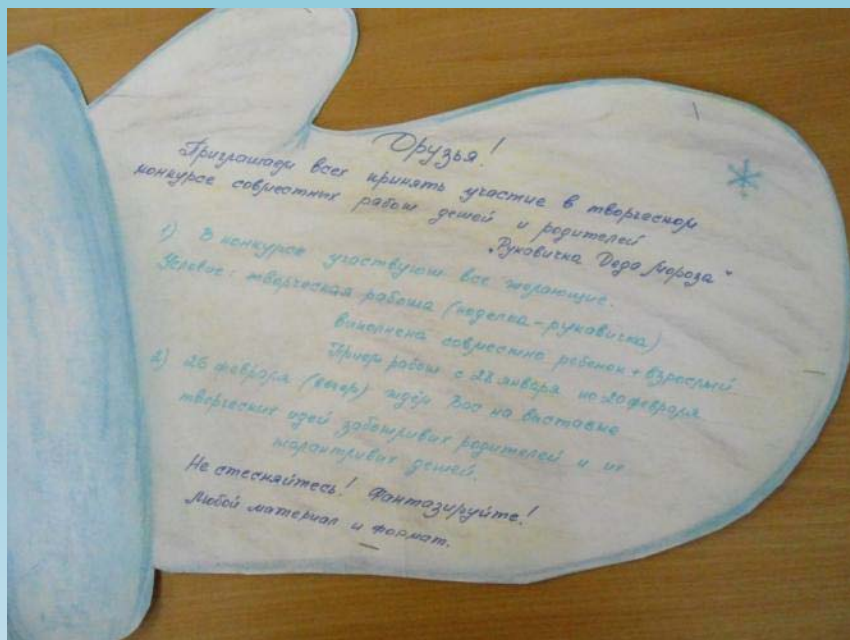 Друзья!
Приглашаем всех принять участие в творческом
конкурсе совместных работ детей и родителей
„Рукавичка Деда Мороза"
1) В конкурсе участвуют все желающие.
Условие: творческая работа (поделка-рукавичка)
выполнена совместно ребенок + взрослый
Прием работ с 28 января по 20 февраля
2) 26 февраля (вечер) ждём Вас на выставке
творческих идей заботливых родителей и их
талантливых детей.
Не стесняйтесь! Фантазируйте!
Любой материал и формат.